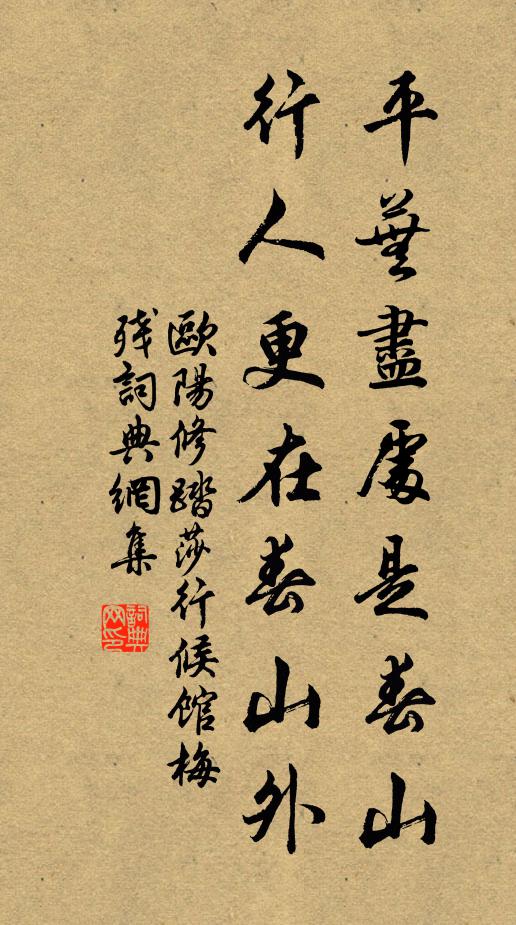 平蕪盡處是春山
行人更在春山外
歐陽修踏莎行候館梅
殘詞典網集
詞典网印